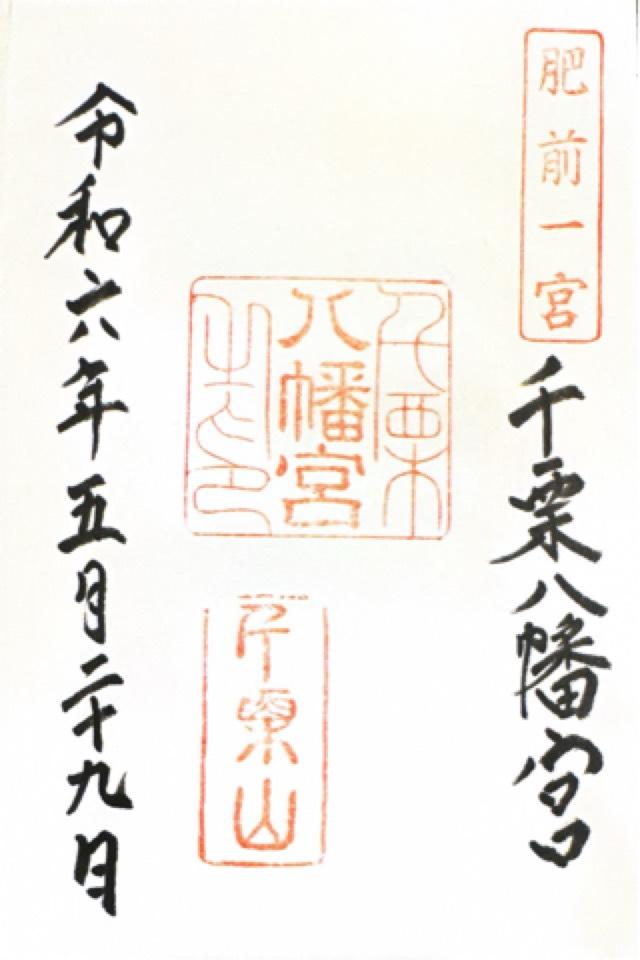 肥前一宮
千栗八幡宮
千栗
八幡宮
之印
千栗山
令和六年五月二十九日